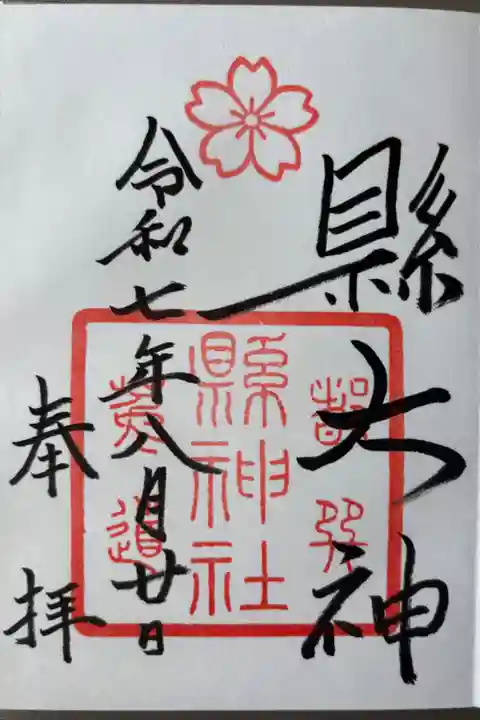 縣大神
令和七年八月廿日
奉拝
縣神社
菟道